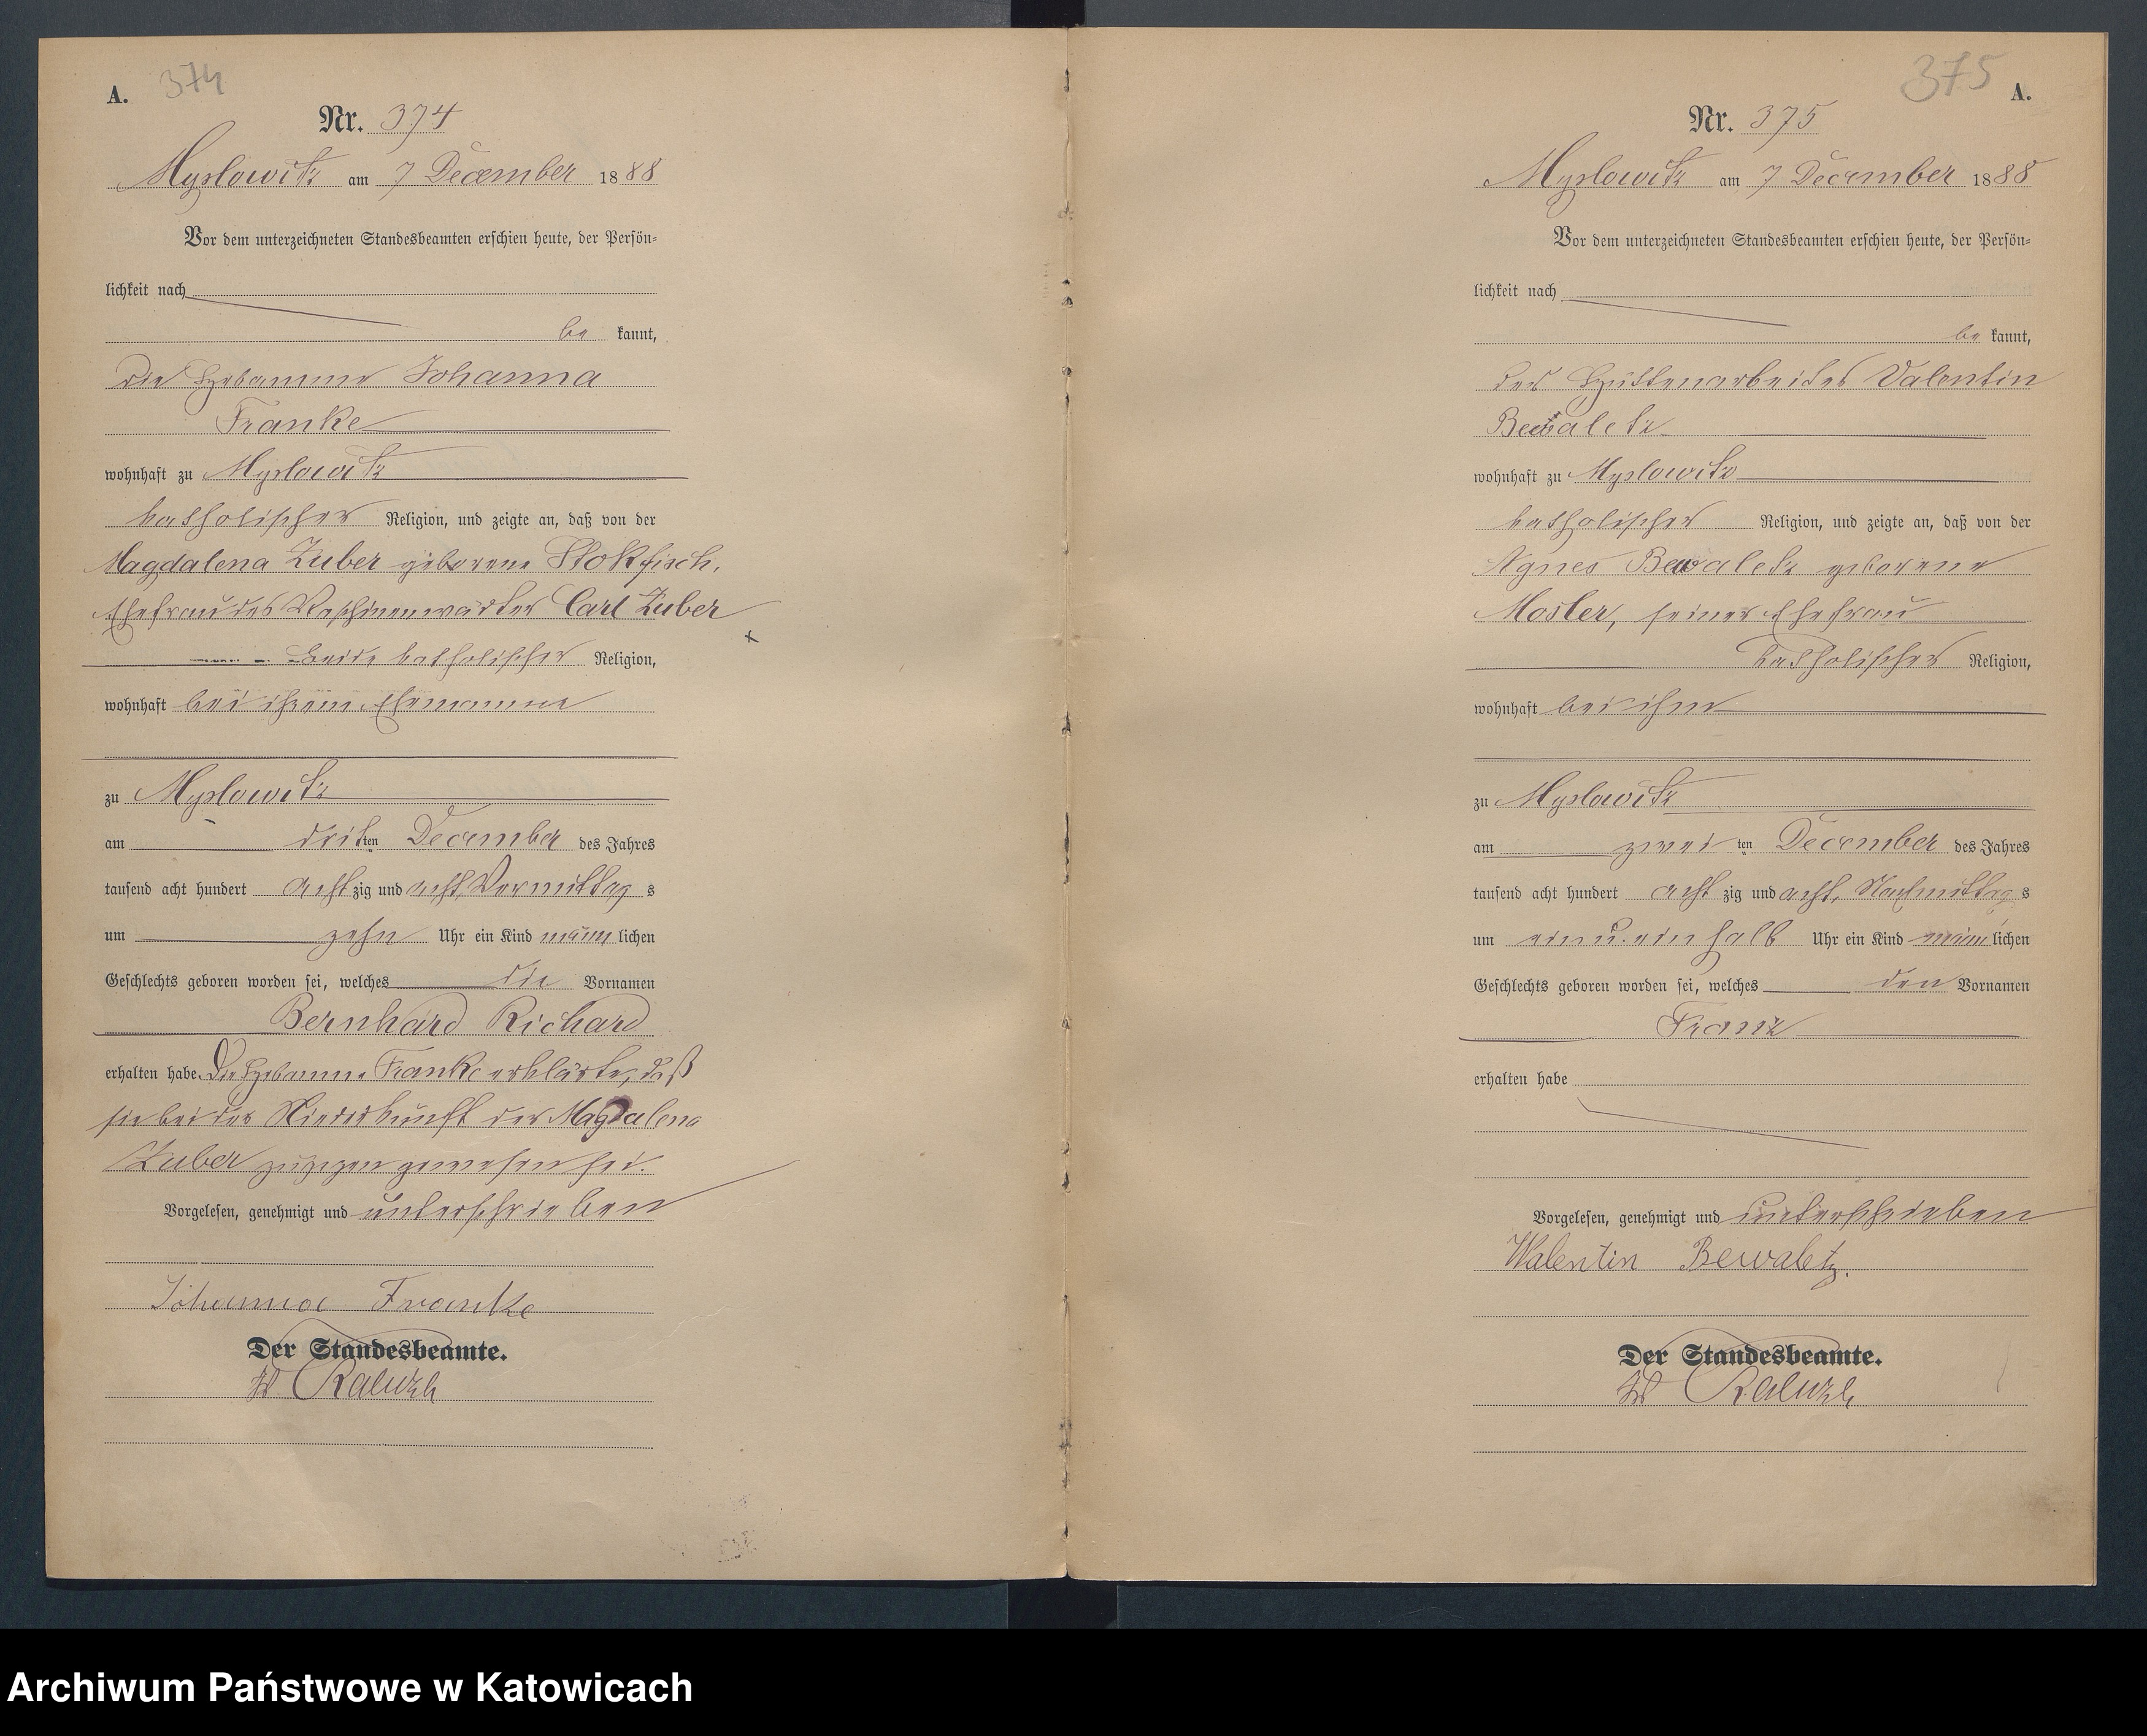 A. 374
Nr. 374
Myslowitz am 7 December 1888
Vor dem unterzeichneten Standesbeamten erschien heute, der Persön-
lichkeit nach
be kannt,
die Hebamme Johanna
Franke
wohnhaft zu Myslowitz
katholischer Religion, und zeigte an, daß von der
Magdalena Zuber geborene Stokfisch,
Ehefrau des Maschinenwärter Carl Zuber
beide katholischer Religion,
wohnhaft bei ihrem Ehemanne
zu Myslowitz
am dritten December des Jahres
tausend acht hundert achtzig und acht Vormittag s
um zehn Uhr ein Kind männlichen
Geschlechts geboren worden sei, welches die Vornamen
Bernhard Richard
erhalten habe. Die Hebamme Franke erklärte, daß
sie bei der Niederkunft der Magdalena
Zuber zugegen gewesen sei.
Vorgelesen, genehmigt und unterschrieben
Johanna Franke
Der Standesbeamte.
375 A.
Nr. 375
Myslowitz am 7 December 1888
Vor dem unterzeichneten Standesbeamten erschien heute, der Persön-
lichkeit nach
be kannt,
der Hüttenarbeiter Valentin
Bewaletz
wohnhaft zu Myslowitz
katholischer Religion, und zeigte an, daß von der
Agnes Bewaletz geborene
Mosler, seiner Ehefrau
katholischer Religion,
wohnhaft bei ihm
zu Myslowitz
am zwei ten December des Jahres
tausend acht hundert acht zig und acht, Nachmittag s
um ein u. ein halb Uhr ein Kind männlichen
Geschlechts geboren worden sei, welches den Vornamen
Franz
erhalten habe
Vorgelesen, genehmigt und unterschrieben
Walentin Bewaletz.
Der Standesbeamte.
Archiwum Państwowe w Katowicach